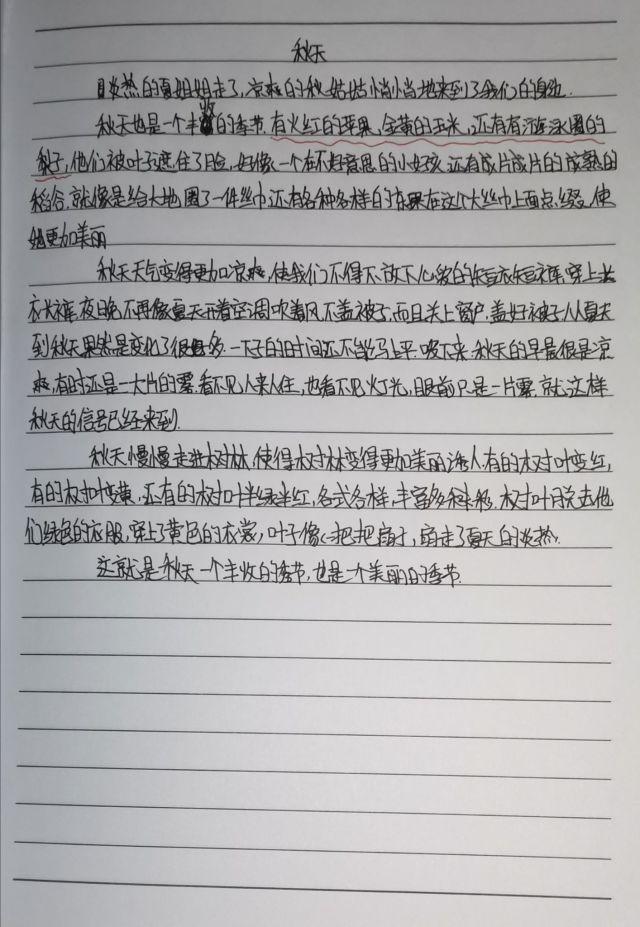 秋天
炎热的夏姐姐走了,凉爽的秋姑姑悄悄地来到了我们的身边.
秋天也是一个丰收的季节.有火红的苹果、金黄的玉米,还有有
梨子,他们被叶子遮住了脸,好像一个个不好意思的小女孩.还有成片成片的成熟的
稻谷.就像是给大地围了一件丝巾.还有各种各样的在这个大丝巾上面点缀,使
她更加美丽
秋天天气变得更加凉爽,使我们不得不放下心爱的短衣短裤,穿上长
衣长裤.夜晚不再像夏天开着空调吹着风,不盖被子,而且关上窗户.盖好被子从夏天
到秋天果然是变化了很多.一下子的时间还不能马上平息下来.秋天的早晨很是凉
爽,有时还是一大片的雾.看不见人来人往,也看不见灯光,眼前只是一片雾.就这样
秋天的信号已经来到.
秋天慢慢走进树林,使得树林变得更加美丽诱人.有的树叶变红,
有的树叶变黄,还有的树叶半绿半红,各式各样,丰富多彩.树叶脱去他
们绿色的衣服,穿上了黄色的衣裳,叶子像一把把扇子,扇走了夏天的炎热.
这就是秋天一个丰收的季节,也是一个美丽的季节.